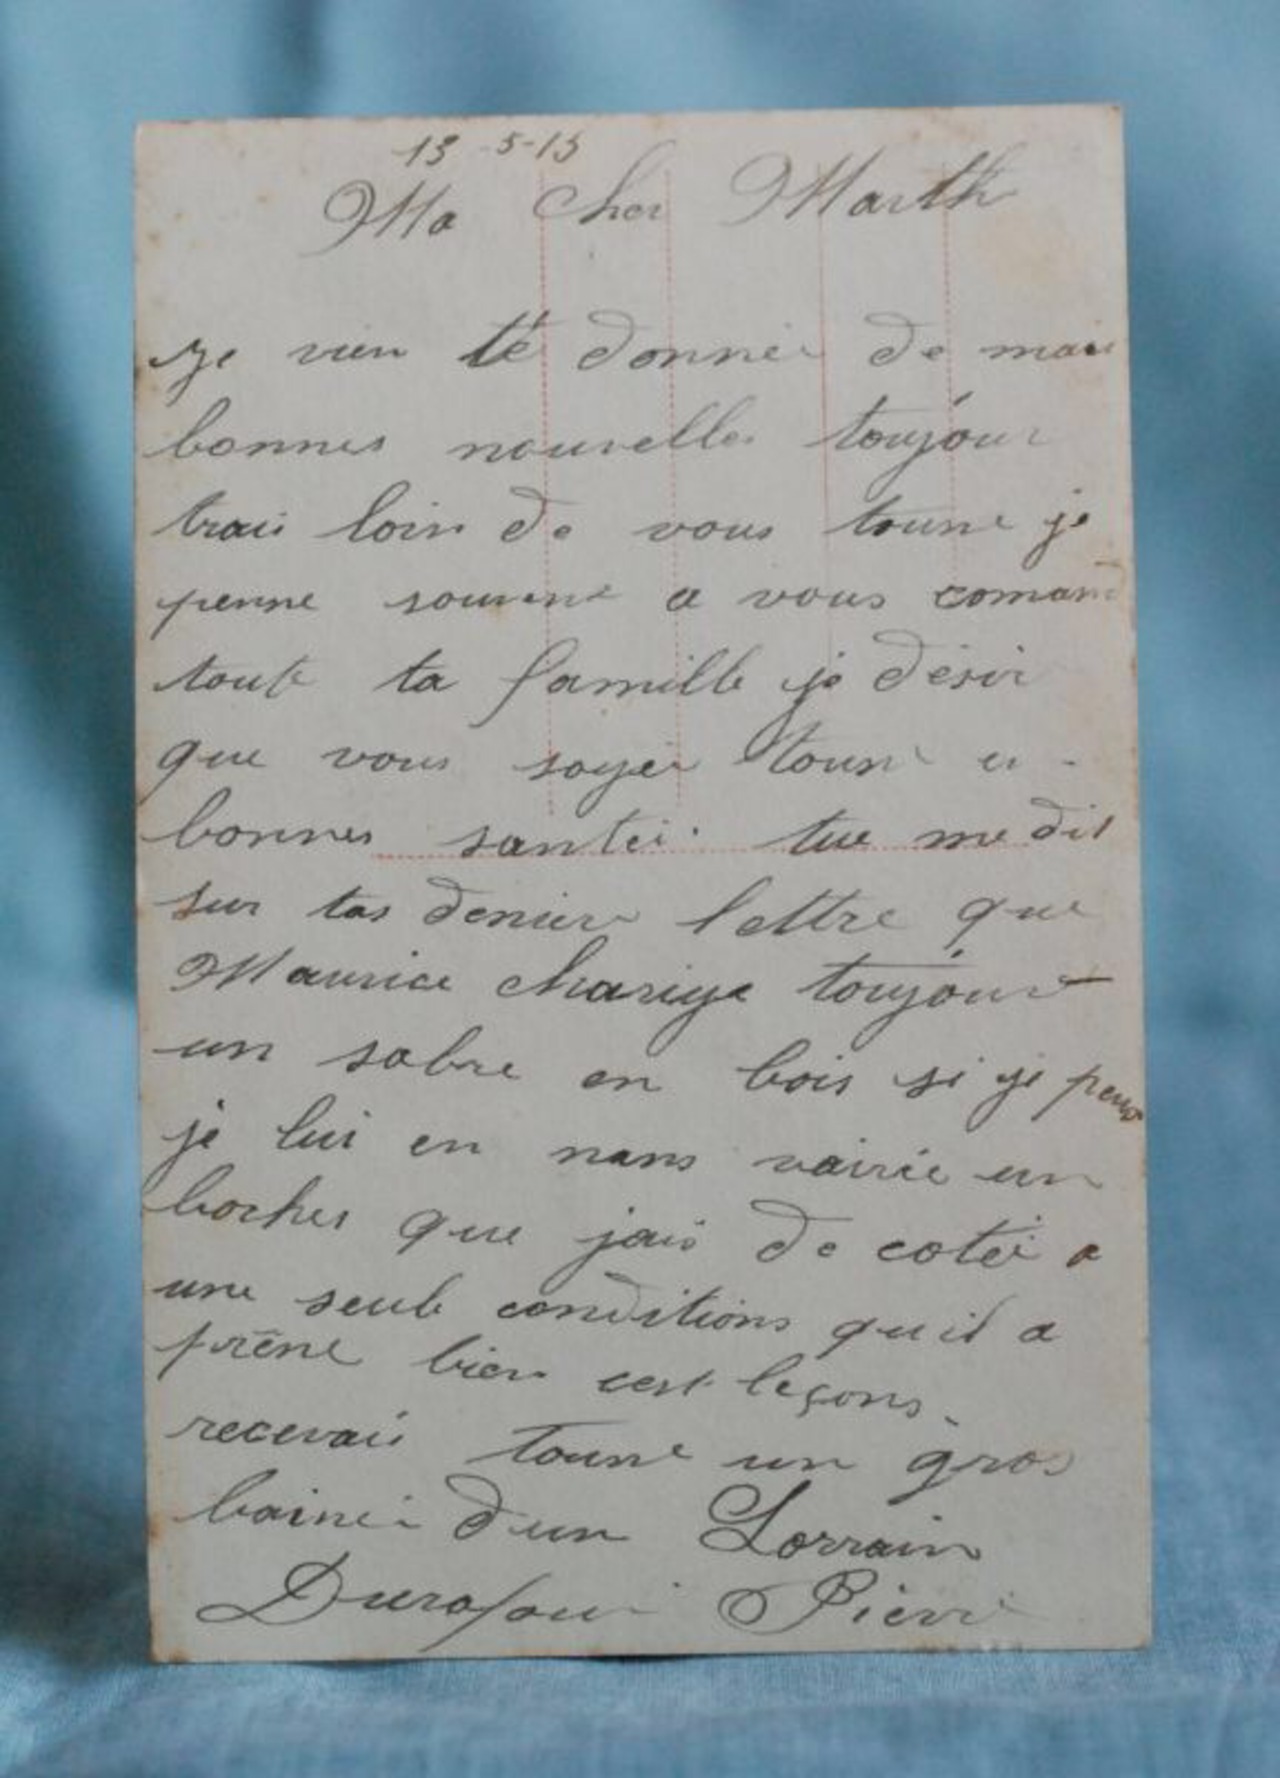 13-5-15
Ma Cher Marth
Je vien té donnée de mais
bonnes nouvelles toujour
trais loin de vous tousse je
pense souvent a vous comme
toute ta famille je désir
que vous soyer tousse en
bonnes santée. tue me dit
sur tas denier lettre que
Maurice charige toujour
un sabre en bois si je peus
je lui en vairée un
boches que jais de cotée a
une seule conditions quil a
prêne bien cest leçons.
recevais tousse un gros
baisée d'un Lorrain
Pierre